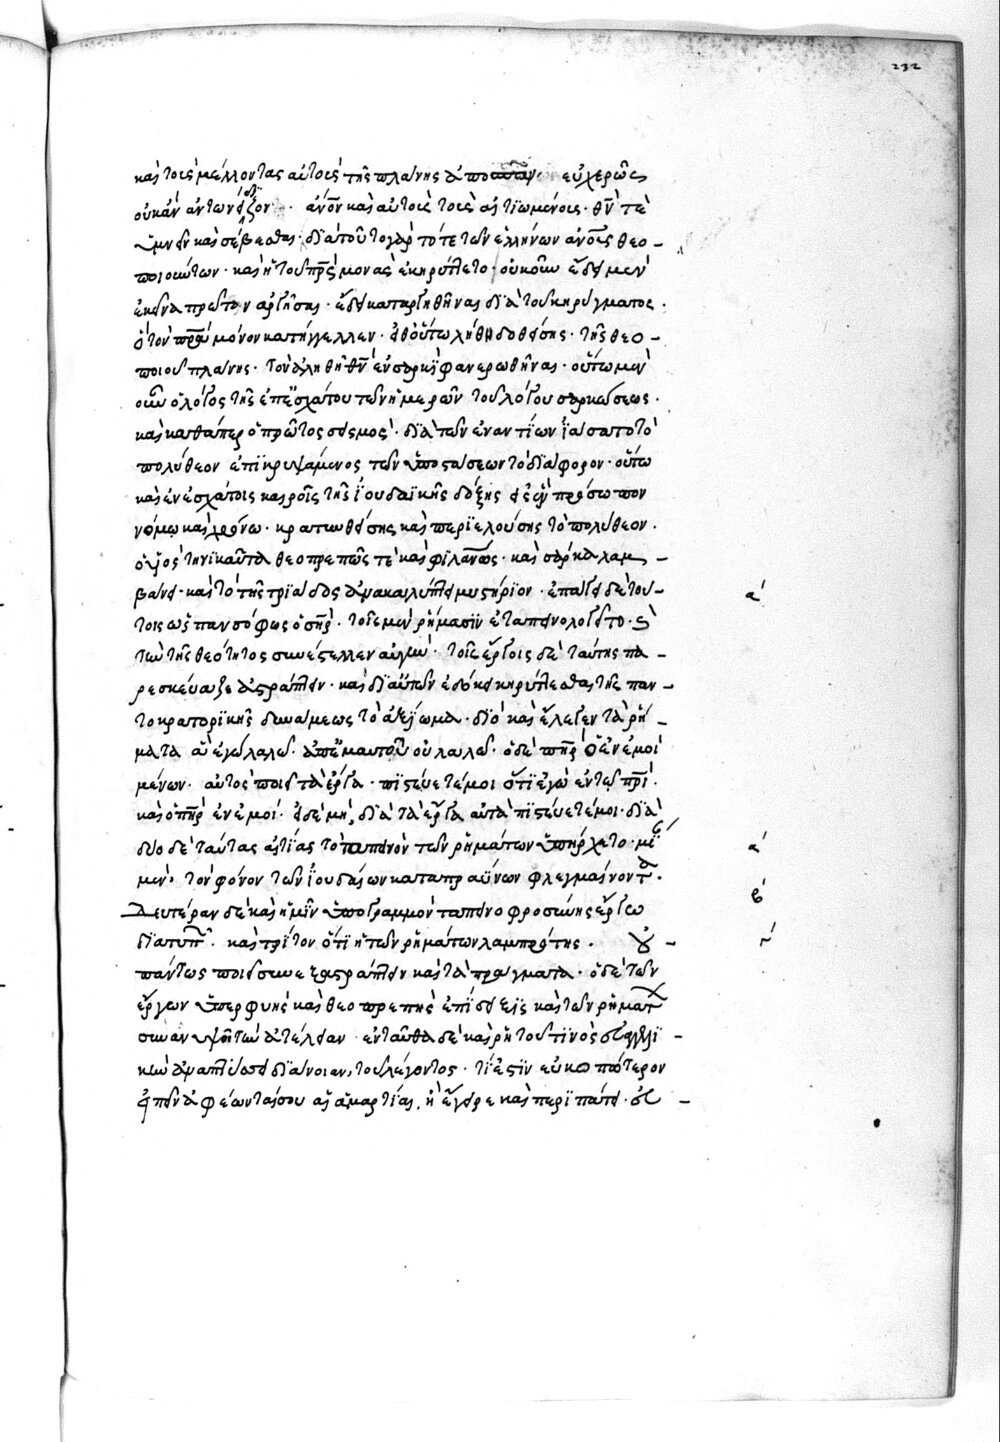 232
καὶ τοὺς μέλλοντας αὐτοὺς τῆς πλάνης εὐχερῶς
οὐκ ἂν ἀντωνό
ὑμνεῖν καὶ σέβεσθαι· διὰ τοῦτο γὰρ τότε τῶν ἑλλήνων ἀνοίας θεο-
ποιούντων· καὶ ἡ τοῦ π̅ρ̅ς μονὰς ἐκηρύττετο· οὐκοῦν ἔδει μὲν
ἐκεῖνα πρῶτον ἀργῆσαι· ἔδει καταργηθῆναι διὰ τοῦ κηρύγματος·
ὃ τὸν π̅ρ̅α μόνον κατήγγελλεν· εἶθ οὕτω λήθη δοθείσης· τῆς θεο-
ποιοῦ πλάνης· τὸν ἀληθῆ θ̅ν̅ ἐν σαρκὶ φανερωθῆναι· οὕτω μὲν
οὖν ὁ λόγος τῆς ἐπ ἐσχάτου τῶν ἡμερῶν τοῦ λόγου σαρκώσεως·
καὶ καθάπερ ὁ πρῶτος διὰ τῶν ἐναντίων ἰάσατο τὸ
πολύθεον ἐπικρυψάμενος τῶν ὑποστάσεων τὸ διάφορον· οὕτω
καὶ ἐν ἐσχάτοις καιροῖς τῆς ἰουδαϊκῆς δόξης εἰς ἓν πρόσωπον
νόμω καὶ χρόνω· κρατυνθείσης καὶ περιελούσης τὸ πολύθεον·
ὁ υἱὸς τηνικαῦτα θεοπρεπῶς τὲ καὶ φιλα̅νως· καὶ σάρκα λαμ-
βάνει· καὶ τὸ τῆς τριάδος ἀνακαλύπτει μυστήριον· ἐπάγει δὲ τού-
τοις ὡς πανσόφως ὁ σ̅η̅ρ· τοῖς μὲν ῥήμασιν ἐταπεινολογεῖτο·
τῶ τῆς θεότητος συνέστελλεν αὐγήν· τοῖς ἔργοις δὲ ταύτης πα-
ρεσκεύαζε ἀστράπτειν· καὶ δι αὐτῶν ἐδόκει κηρύττεσθαι τῆς παν-
τοκρατορικῆς δυνάμεως τὸ ἀξίωμα· διὸ καὶ ἔλεγεν τὰ ῥή-
ματα ἃ ἐγὼ λαλῶ· ἀπ ἐμαυτοῦ οὐ λαλῶ· ὁ δὲ π̅η̅ρ ὁ ἐν ἐμοὶ
μένων· αὐτὸς ποιεῖ τὰ ἔργα· πιστεύετέ μοι ὅτι ἐγὼ ἐν τῶ π̅ρ̅ι·
καὶ ὁ π̅η̅ρ ἐν ἐμοί· εἰ δὲ μή, διὰ τὰ ἔργα αὐτὰ πιστεύετέ μοι· διὰ
δύο δὲ ταύτας αἰτίας τὸ ταπεινὸν τῶν ῥημάτων ὑπήρχετο· μί
μὲν· τὸν φόνον τῶν ἰουδαίων καταπραΰνων φλεγμαίνοντα·
Δευτέραν δὲ καὶ ἡμῖν ὑπογραμμὸν ταπεινοφροσύνης ἔργω
διατυπῶν· καὶ τρίτον ὅτι ἡ τῶν ῥημάτων λαμπρότης· οὐ-
πάντως ποιεῖ συνεξαστράπτειν καὶ τὰ πράγματα· ὁ δὲ τῶν
ἔργων ὑπερφυὴς καὶ θεοπρεπὴς ἐπίδειξις καὶ τῶν ῥημάτ
συνανυψοῖ τὴν εὐτέλειαν· ἐνταῦθα δὲ καὶ ῥητοῦ τινὸς συγγενι-
κὴν ἀναπτύσσει διάνοιαν, τοῦ λέγοντος· τί ἐστιν εὐκοπώτερον
εἰπεῖν ἀφέωνταί σου αἱ ἁμαρτίαι, ἢ ἔγειρε καὶ περιπάτει· οἱ-
α΄
α΄
β΄
γ΄